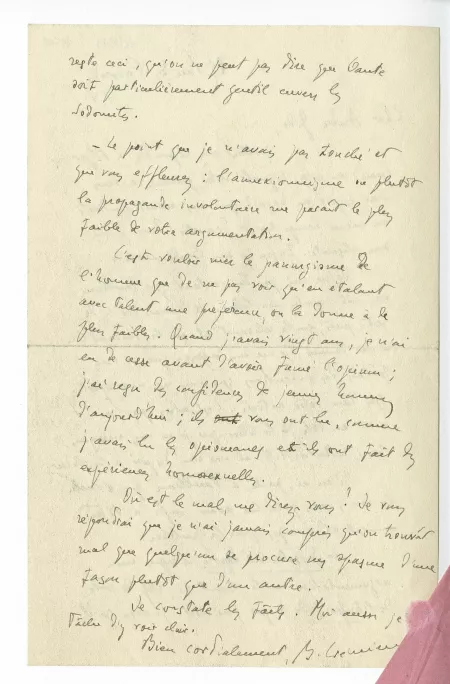 reste ceci, qu'on ne peut pas dire que Dante
soit particulièrement gentil envers les
Sodomites.
– Le point que je n'avais pas touché et
que vous effleurez : l'annexionnisme ou plutôt
la propagande involontaire me paraît le plus
faible de votre argumentation.
C'est vouloir nier le panurgisme de
l'homme que de ne pas voir qu'en étalant
avec talent une préférence, on la donne à de
plus faibles. Quand j'avais vingt ans, je n'ai
eu de cesse avant d'avoir fumé l'opium ;
j'ai reçu des confidences de jeunes hommes
d'aujourd'hui ; ils ont vous ont lu, comme
j'avais lu les opiomanes et ils ont fait des
expériences homosexuelles.
Où est le mal, me direz-vous ? Je vous
répondrai que je n'ai jamais compris qu'on trouvât
mal que quelqu'un se procure un spasme d'une
façon plutôt que d'une autre.
Je constate les faits. Moi aussi je
tâche d'y voir clair.
Bien cordialement, B. Crémieux